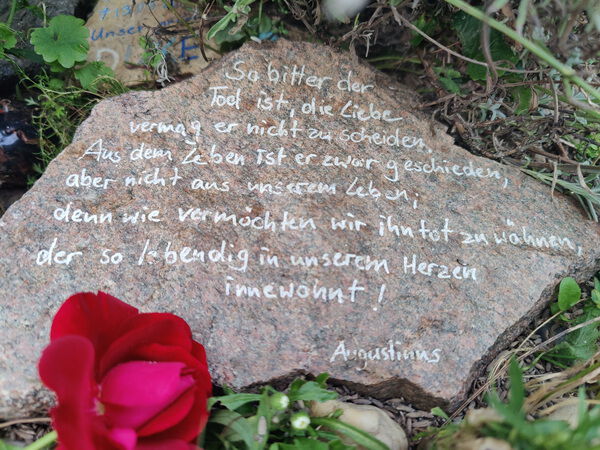 So bitter der
Tod ist, die Liebe
vermag er nicht zu scheiden.
Aus dem Leben ist er zwar geschieden,
aber nicht aus unserem Leben;
denn wie vermöchten wir ihn tot zu wähnen,
der so lebendig in unserem Herzen
innewohnt!
Augustinus